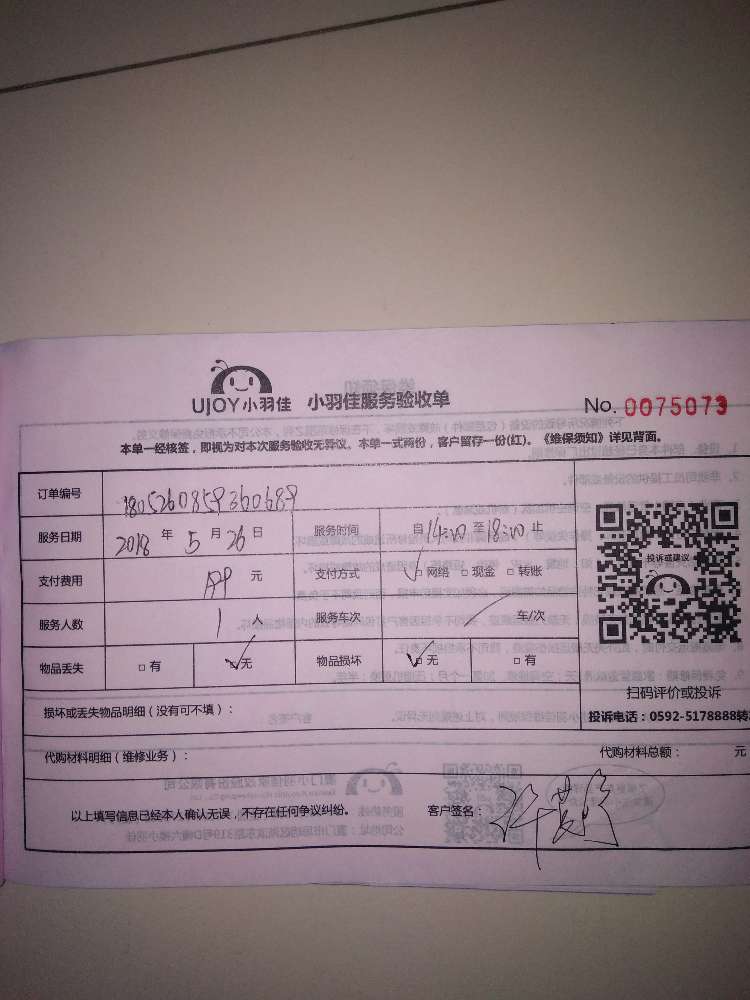 UJOY小羽佳 小羽佳服务验收单 No. 0075073
本单一经核签，即视为对本次服务验收无异议。本单一式两份，客户留存一份(红)。《维保须知》详见背面。
订单编号 1805260859360689
服务日期 2018 年 5 月 26 日 服务时间 自 14:00 至 18:00 止
支付费用 APP 元 支付方式 ✓□ 网络 □ 现金 □ 转账
服务人数 1 人 服务车次 / 车/次
物品丢失 □ 有 ✓□ 无 物品损坏 ✓□ 无 □ 有
投诉或建议
扫码评价或投诉
投诉电话：0592-5178888转
损坏或丢失物品明细（没有可不填）：
代购材料明细（维修业务）： 代购材料总额： 元
以上填写信息已经本人确认无误，不存在任何争议纠纷。 客户签名：